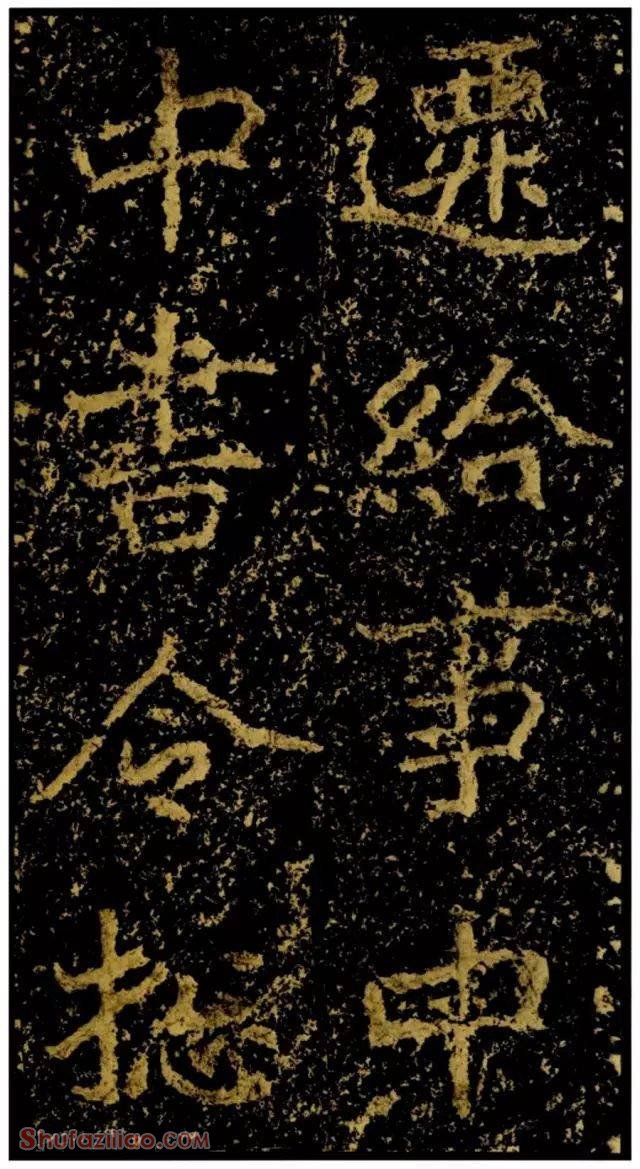 遷給事中
中書令揔
Shufaziliao.com